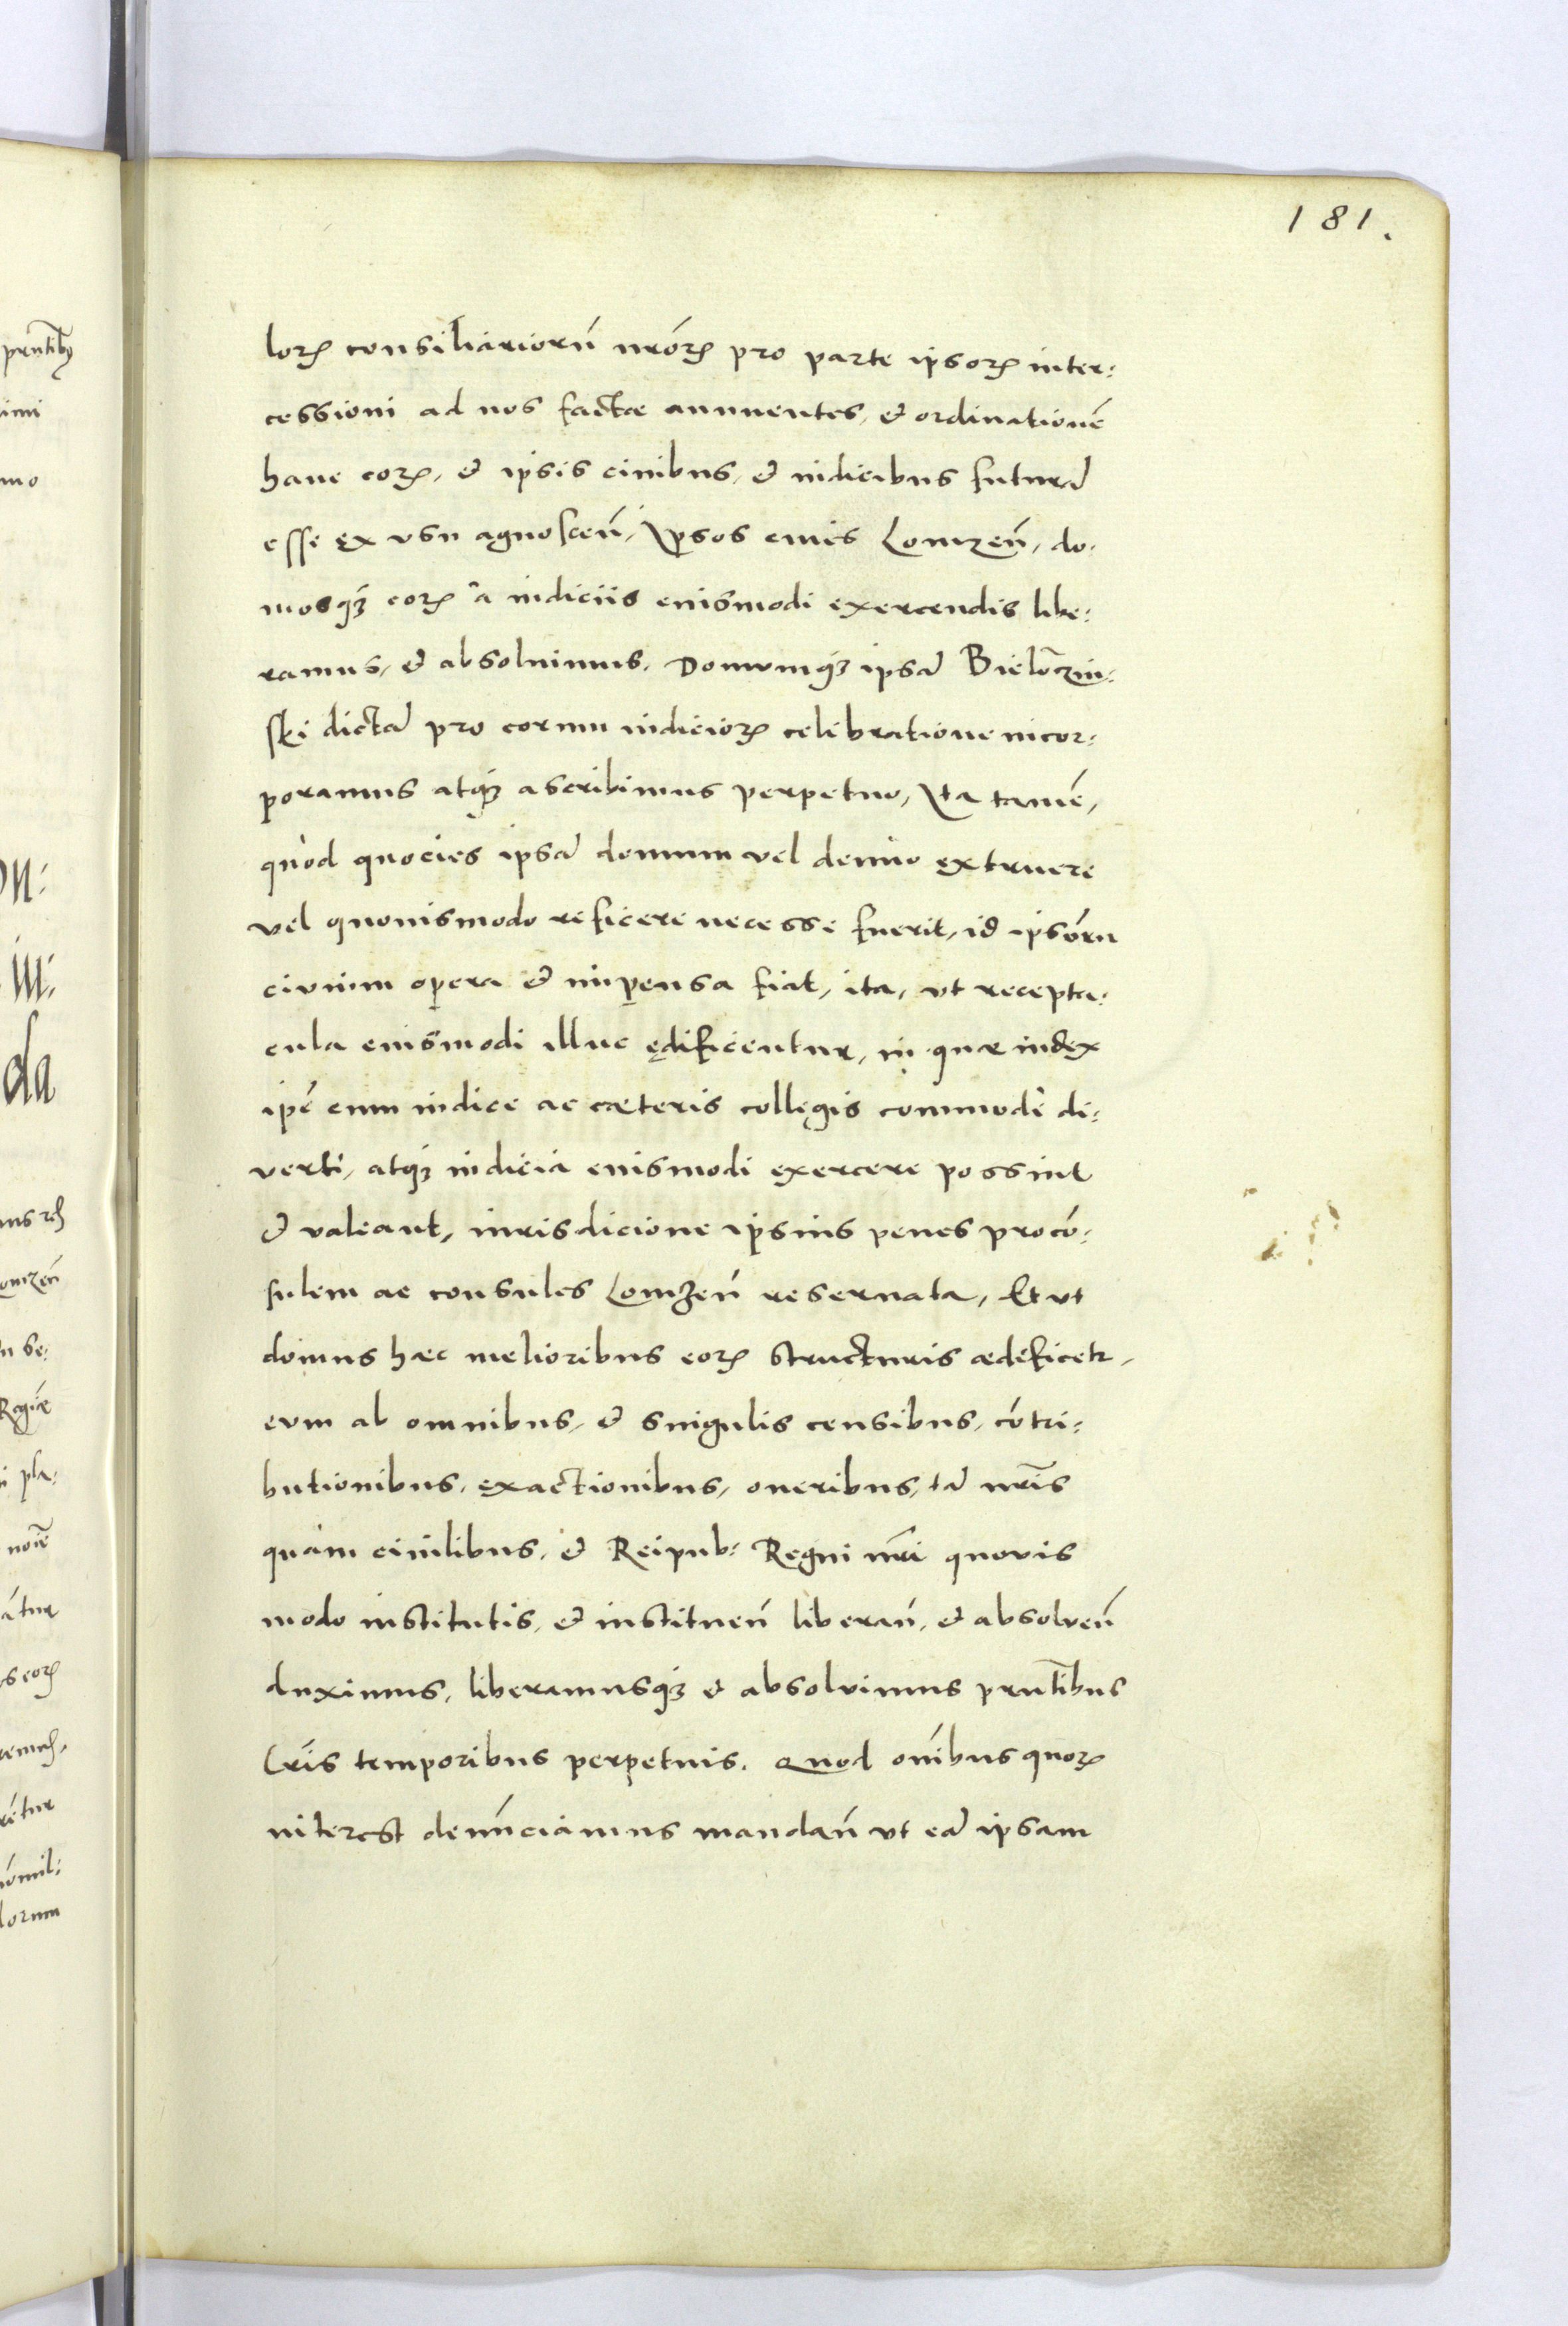 181.
loꝝ consiliariorū nrōꝝ pro parte ipsoꝝ inter:
cessioni ad nos factæ annuentes, et ordinationē
hanc eoꝝ, et ipsis ciuibus, et iudicibus futurā
esse ex vsu agnoscen̄, Ipsos ciues Lomzen̄, do:
mosq3 eoꝝ â iudiciis euismodi exercendis libe:
ramus, et absoluimus. Domumq3 ipsā Bielocz̄in:
ski dictā pro eorum iudicioꝝ celibratione incor:
poramus atq3 ascribimus perpetuo, Ita tamē,
quod quocies ipsā domum vel denuo extruere
vel quouismodo reficere necesse fuerit, id ipsōrū
civium opera et impensa fiat, ita, vt recepta:
cula euismodi illuc ędificientur, in quæ iudex
ipē cum iudice ac cæteris collęgis commodè di:
verti, atq3 iudicia euismodi exercere possint
et valeant, iurisdicione ipsius penes procō:
sulem ac consules Lomzen̄ reseruata, Et vt
domus hæc melioribus eoꝝ structuris ædeficetr,
eum ab omnibus, et singulis censibus, cōtri:
butionibus, exactionibus, oneribus, tā nrīs
quàm ciuilibus, et Reipub: Regni nrī quovis
modo institutis, et instituen̄ liberan̄, et absolven̄
duximus, liberamusq3 et absolvimus prn̄tibus
Lrīs temporibus perpetuis. Quod om̄ibus quoꝝ
interest denūciamus mandan̄ vt eā ipsam
prn̄tibꝰ
imi
mo
on:
in:
da
omzen̄
n se:
Regiæ
i pla:
ātur
s eoꝝ
ētur
lorum